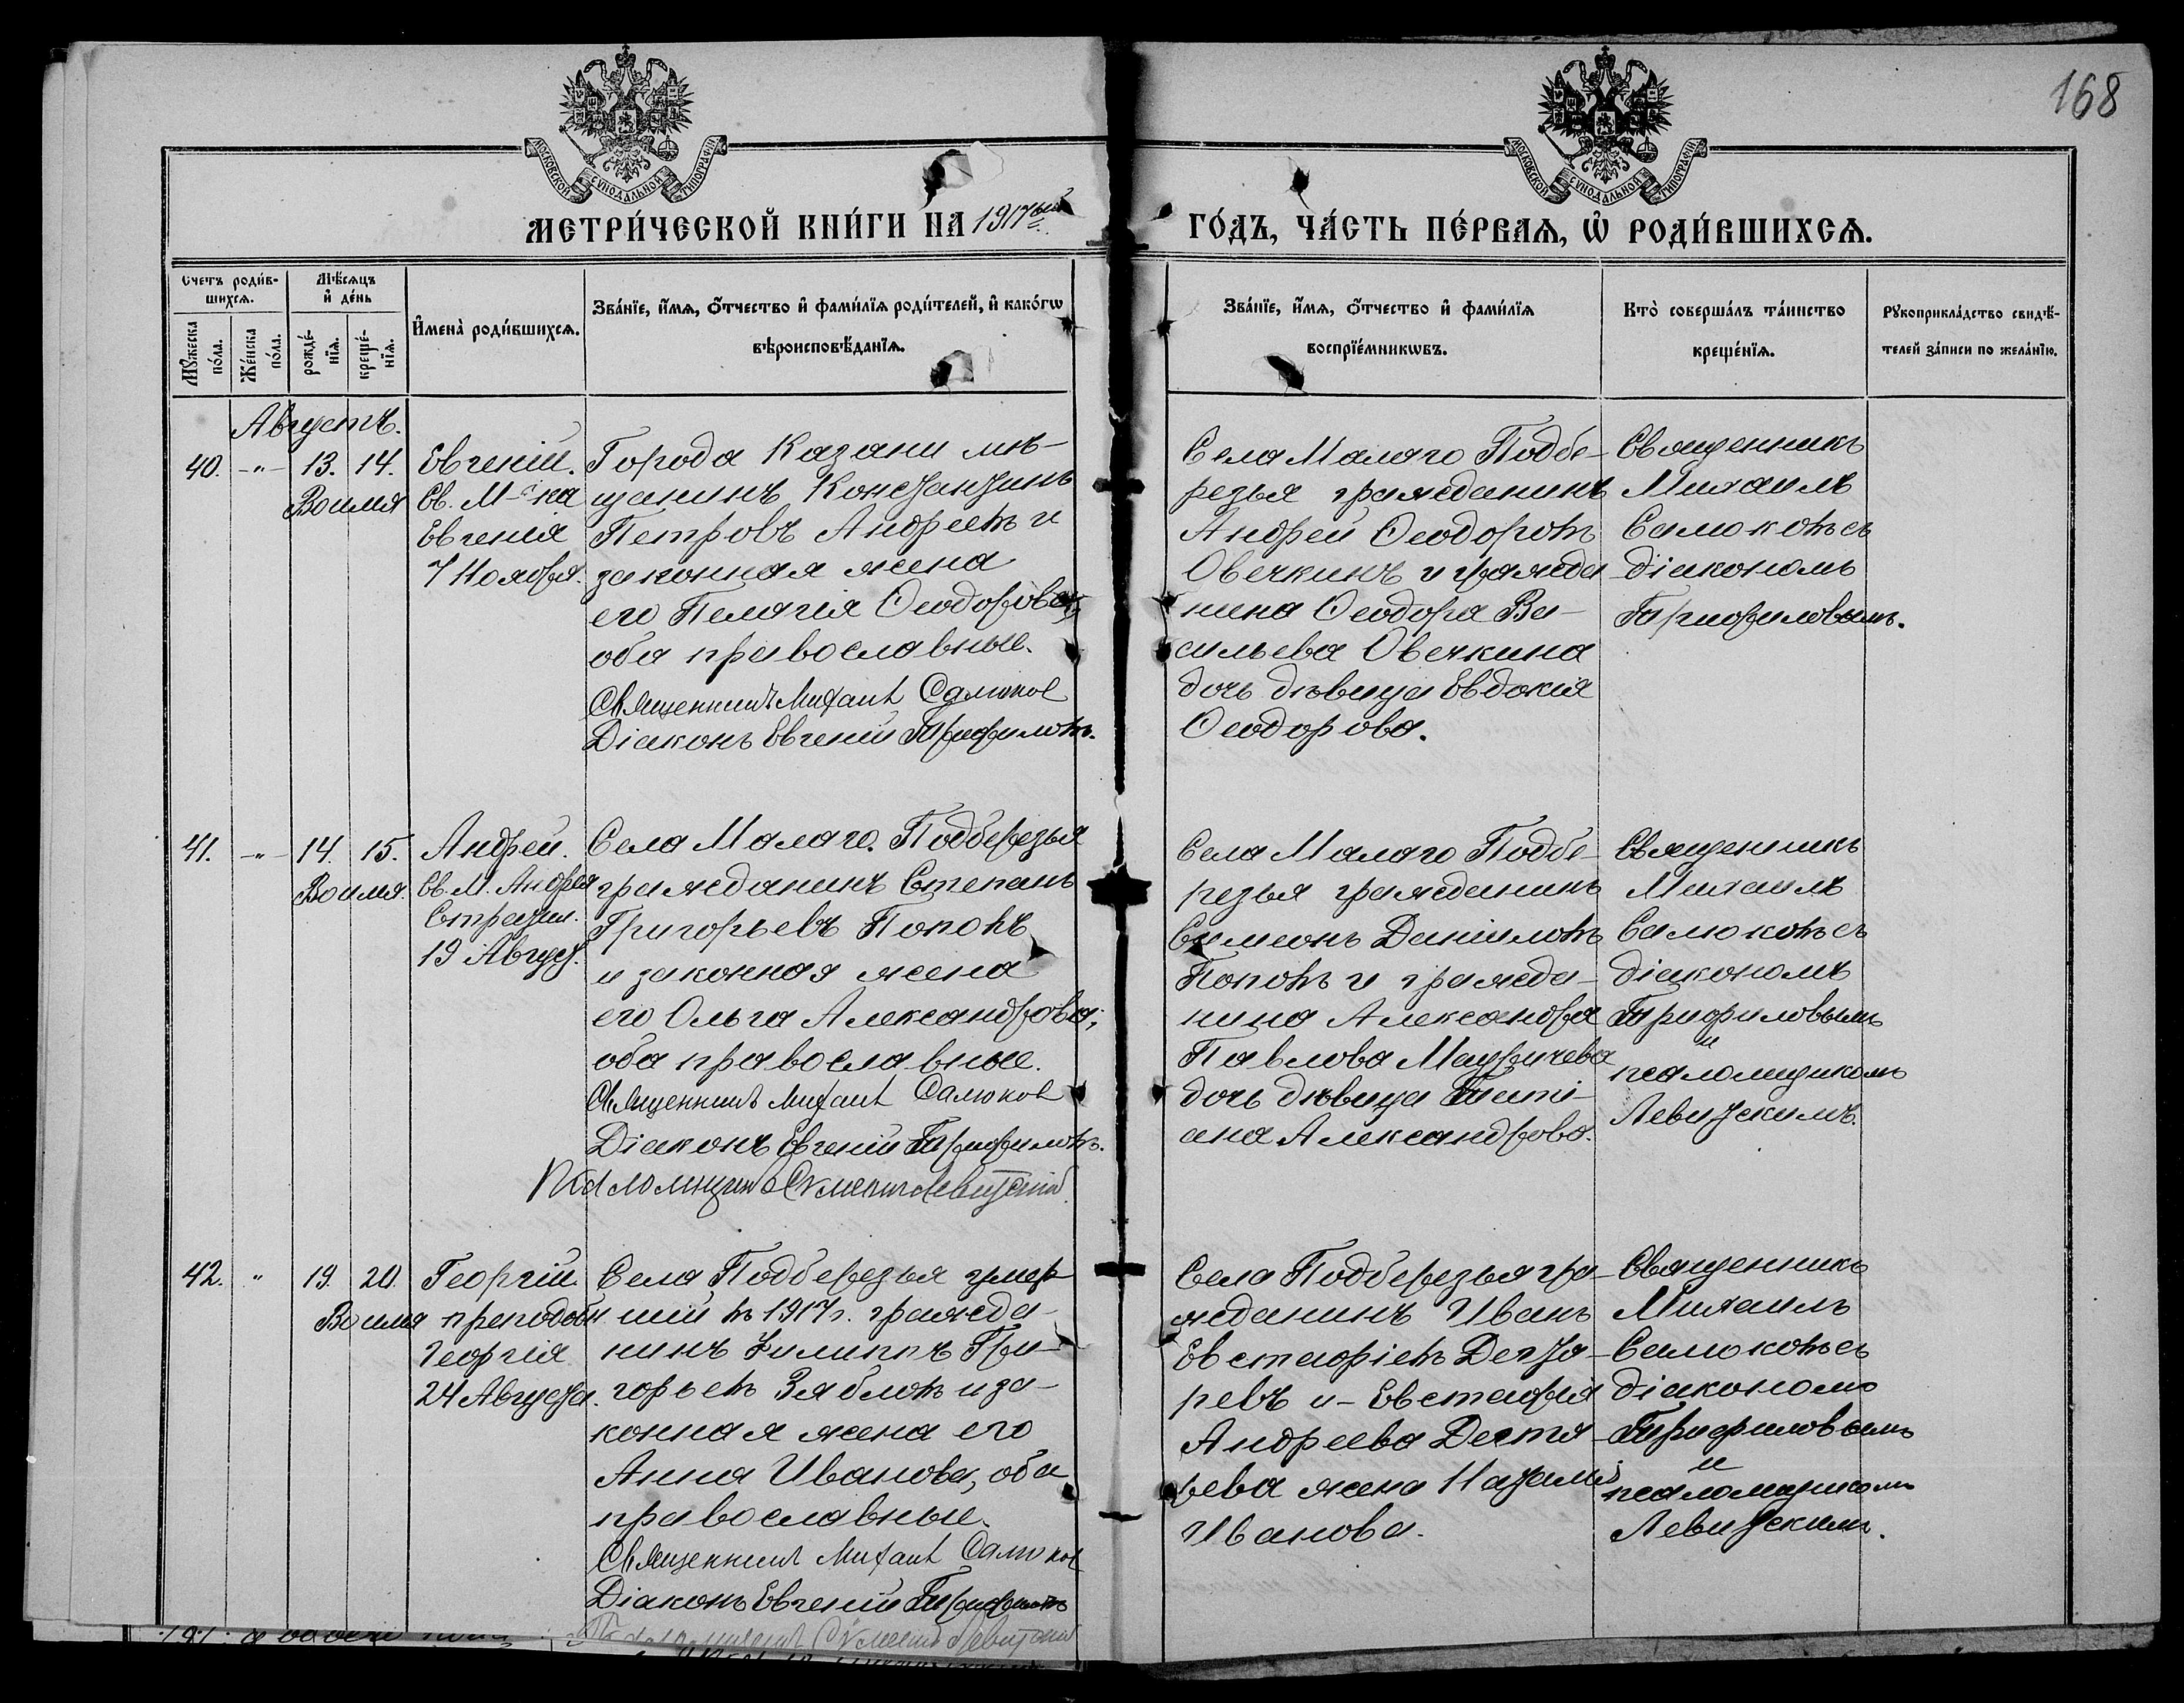 168
МОСКОВСКОЙ СУНОДАЛЬНОЙ ТИПОГРАФІИ
МОСКОВСКОЙ СУНОДАЛЬНОЙ ТИПОГРАФІИ
МЕТРИ́ЧЕСКОЙ КНИ́ГИ НА 1917ый
ГО́ДЪ, ЧА́СТЬ ПЕ́РВАѦ, Ѡ҆ РОДИ́ВШИХСѦ.
Счетъ роди́в-
шихсѧ.
Мѣ́сѧцъ
и҆ де́нь
Мꙋ́жеска
по́ла.
Же́нска
по́ла.
рожде́-
нїѧ.
креще́-
нїѧ.
И҆мена̀ роди́вшихсѧ.
Зва́нїе, и҆́мѧ, ѻ҆́тчество и҆ фами́лїѧ роди́телей, и҆ како́гѡ
вѣроисповѣ́данїѧ.
Зва́нїе, и҆́мѧ, ѻ҆́тчество и҆ фами́лїѧ
воспрїе́мникѡвъ.
Кто̀ соверша́лъ та́инство
креще́нїѧ.
Рꙋкоприкла́дство свидѣ́-
телей за́писи по жела́нїю.
Августъ.
40. -"- 13. 14.
Во имя
Евгеній.
Св. М-ка
Евгенія
7 Ноября.
Города Казани мѣ-
щанинъ Константинъ
Петровъ Андреевъ и
законная жена
его Пелагія Ѳеодорова,
оба православные.
Священникъ Михаилъ Самоков
Діаконъ Евгеній Трифиловъ.
Села Малаго Подбе-
резья гражданинъ
Андрей Ѳеодоровъ
Овечкинъ и гражда-
нина Ѳеодора Ва-
сильева Овечкина
дочь дѣвица Евдокія
Ѳеодорова.
Священникъ
Михаилъ
Самоковъ съ
діакономъ
Трифиловымъ.
41. -"- 14. 15.
Во имя
Андрей.
Св. М. Андрея
Стратил.
19 Август.
Села Малаго Подберезья
гражданинъ Степанъ
Григорьевъ Поповъ
и законная жена
его Ольга Александрова;
оба православные.
Священникъ Михаилъ Самоков
Діаконъ Евгеній Трифиловъ.
Псаломщикъ Левитскій
Села Малаго Подбе-
резья гражданинъ
Симеонъ Даніиловъ
Поповъ и гражда-
нина Александра
Павлова Мавричева
дочь дѣвица Таті-
ана Александрова.
Священникъ
Михаилъ
Самоковъ съ
діакономъ
Трифиловымъ
и
псаломщикомъ
Левитскимъ.
42. " 19. 20.
Во имя
Георгій
преподобн
Георгія
24 Августа.
Села Подберезья умер-
шій въ 1917 г. гражда-
нинъ Филиппъ Гри-
горьевъ Зябловъ и за-
конная жена его
Анна Иванова, оба
православные.
Священникъ Михаилъ Самоков
Діаконъ Евгеній Трифиловъ
Псаломщикъ Левитскій
Села Подберезья гра-
жданинъ Иванъ
Евстафіевъ Дегтя-
ревъ и Евстафія
Андреева Дегтя-
рева жена Наталія
Иванова.
Священникъ
Михаилъ
Самоковъ съ
діакономъ
Трифиловымъ
и
псаломщикомъ
Левитскимъ.